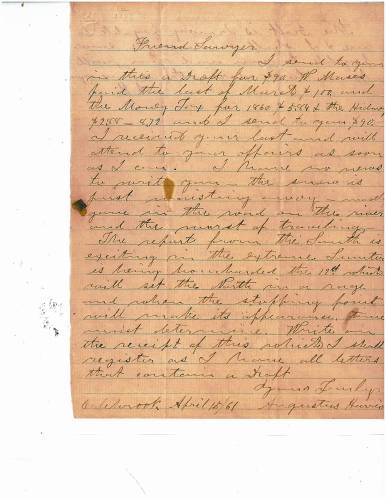 Friend Sawyer
I send to you
in this a Draft for $90. W Moses
paid the last of March $102 and
the Money Tax for 1860 $5.84 & the
and I send to you $90
I received your last and will
attend to your affairs as soon
as I can. I have no news
to write you the snow is
just wasting away and
gone in the road on the river
and the worst of traveling
The report from the South is
exciting in the extreme Sumter
is being bombarded the 12th which
will set the North in a rage
and when the stopping point
will make its appearance time
must determine. Write on
the receipt of this which I shall
register as I have all letters
that contain a Draft
Yours Truly
Colebrook April 15/61 Augustus